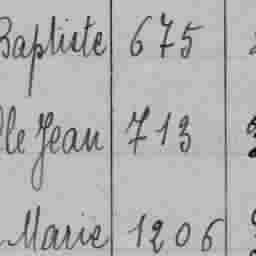 Baptiste 675
le Jean 713
Marie 1206